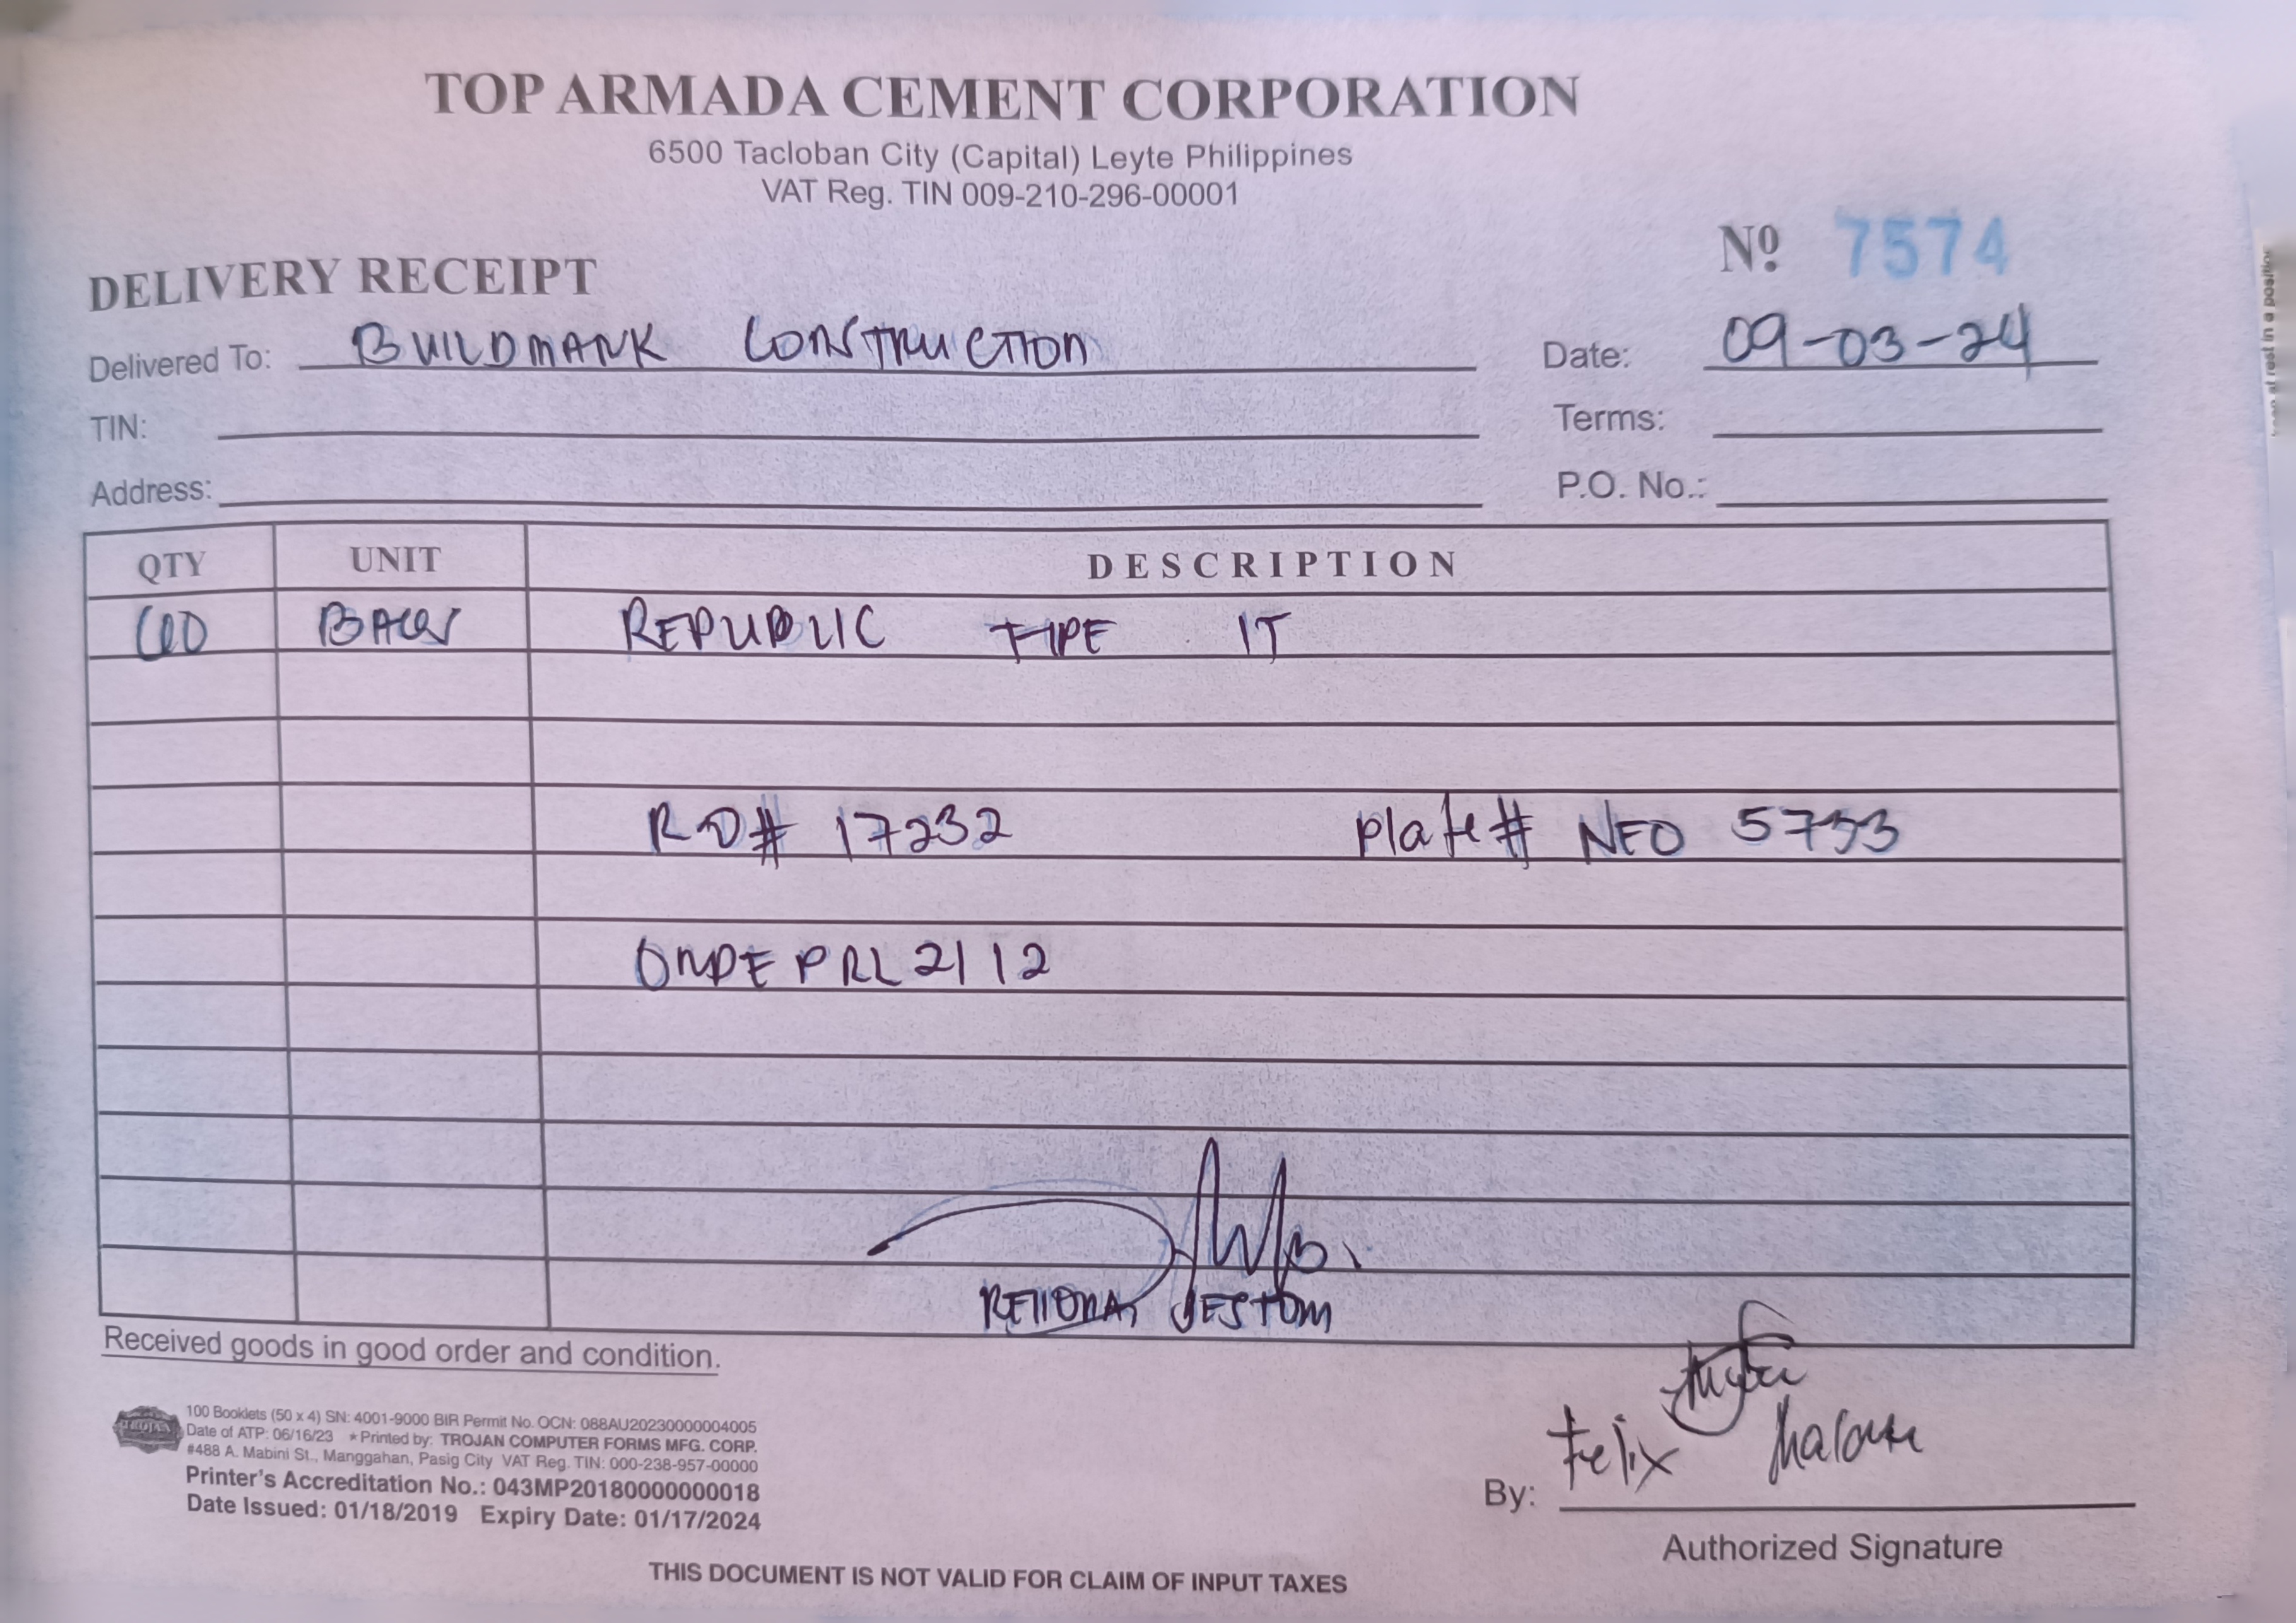 TOP ARMADA CEMENT CORPORATION
6500 Tacloban City (Capital) Leyte Philippines
VAT Reg. TIN 009-210-296-00001
Nº 7574
DELIVERY RECEIPT
Delivered To: BUILDMARK CONSTRUCTION
Date: 09-03-24
TIN:
Terms:
Address:
P.O. No.:
QTY UNIT DESCRIPTION
REPUBLIC TYPE 1T
RO# 17232 Plate# NFO 5753
PRL 2112
JESTOM
Received goods in good order and condition.
100 Booklets (50 x 4) SN: 4001-9000 BIR Permit No. OCN: 088AU20230000004005
Date of ATP: 06/16/23 * Printed by: TROJAN COMPUTER FORMS MFG. CORP.
#488 A. Mabini St., Manggahan, Pasig City VAT Reg. TIN: 000-238-957-00000
Printer's Accreditation No.: 043MP20180000000018
Date Issued: 01/18/2019 Expiry Date: 01/17/2024
Felix
By:
Authorized Signature
THIS DOCUMENT IS NOT VALID FOR CLAIM OF INPUT TAXES